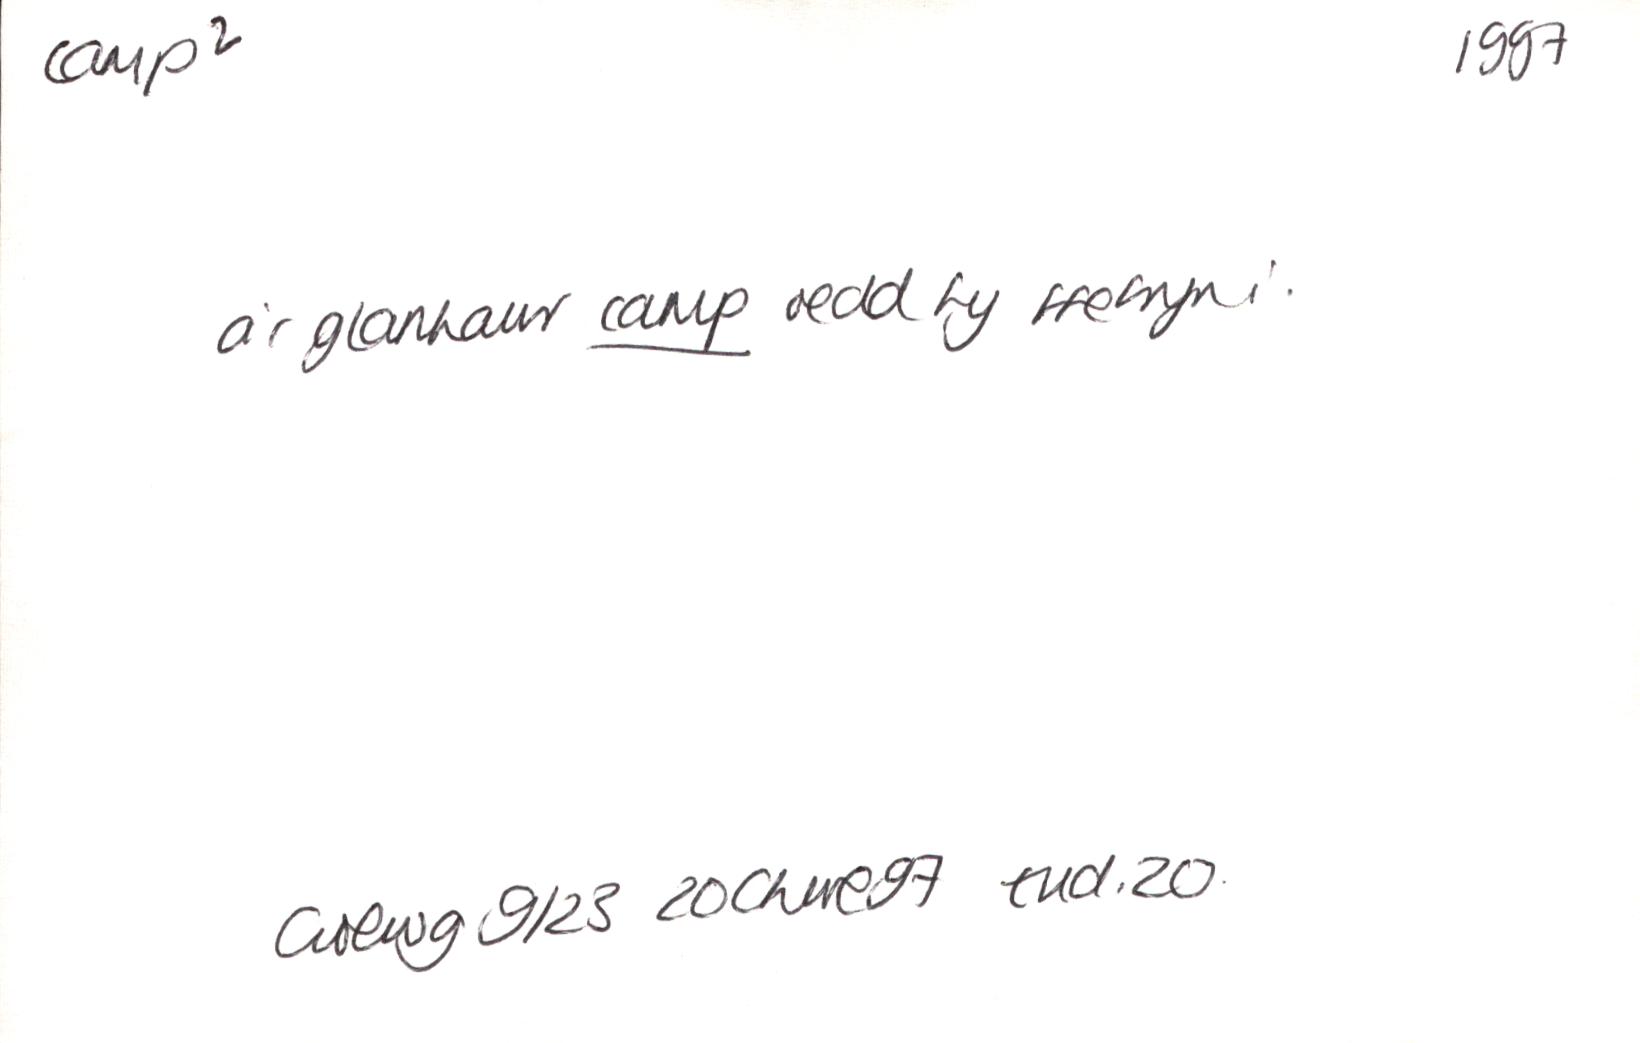 camp² 1997
a'r glanhawr camp oedd fy ffefryn i.
Golwg 9/23 20 Chwe 97 tud. 20.